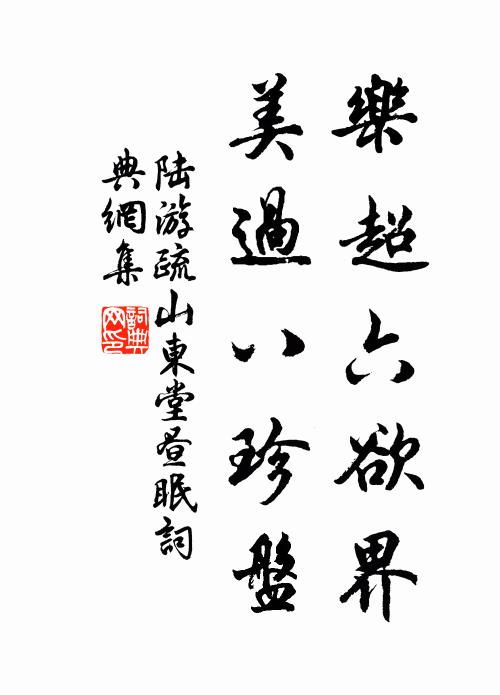 樂超六欲界
美過八珍盤
陸游疏山東堂昼眠詞
典網集
詞典網印